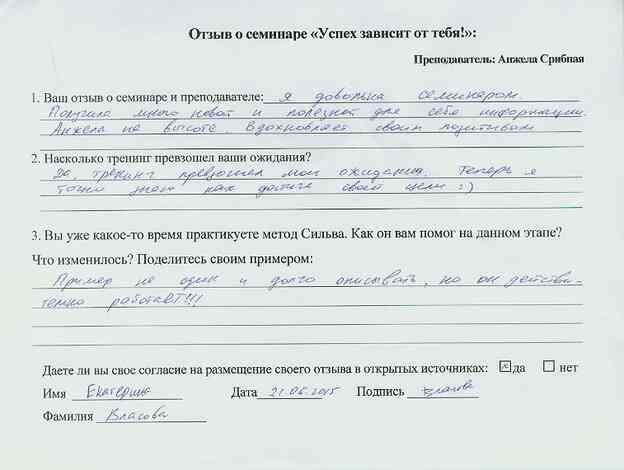 Отзыв о семинаре «Успех зависит от тебя!»:
Преподаватель: Анжела Срибная
1. Ваш отзыв о семинаре и преподавателе: Я довольна семинаром.
Получила много новой и полезной для себя информации.
Анжела на высоте. Вдохновляет своим позитивом
2. Насколько тренинг превзошел ваши ожидания?
Да, тренинг превзошел мои ожидания. Теперь я
точно знаю как достичь своей цели :)
3. Вы уже какое-то время практикуете метод Сильва. Как он вам помог на данном этапе?
Что изменилось? Поделитесь своим примером:
Пример не один и долго описывать, но он действи-
тельно работает!!!
Даете ли вы свое согласие на размещение своего отзыва в открытых источниках: да нет
Имя Екатерина Дата 21.06.2015 Подпись
Фамилия Власова